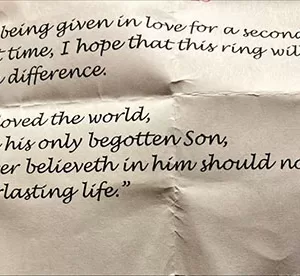 being given in love for a second
t time, I hope that this ring will
difference.
loved the world,
his only begotten Son,
er believeth in him should no
rlasting life.”